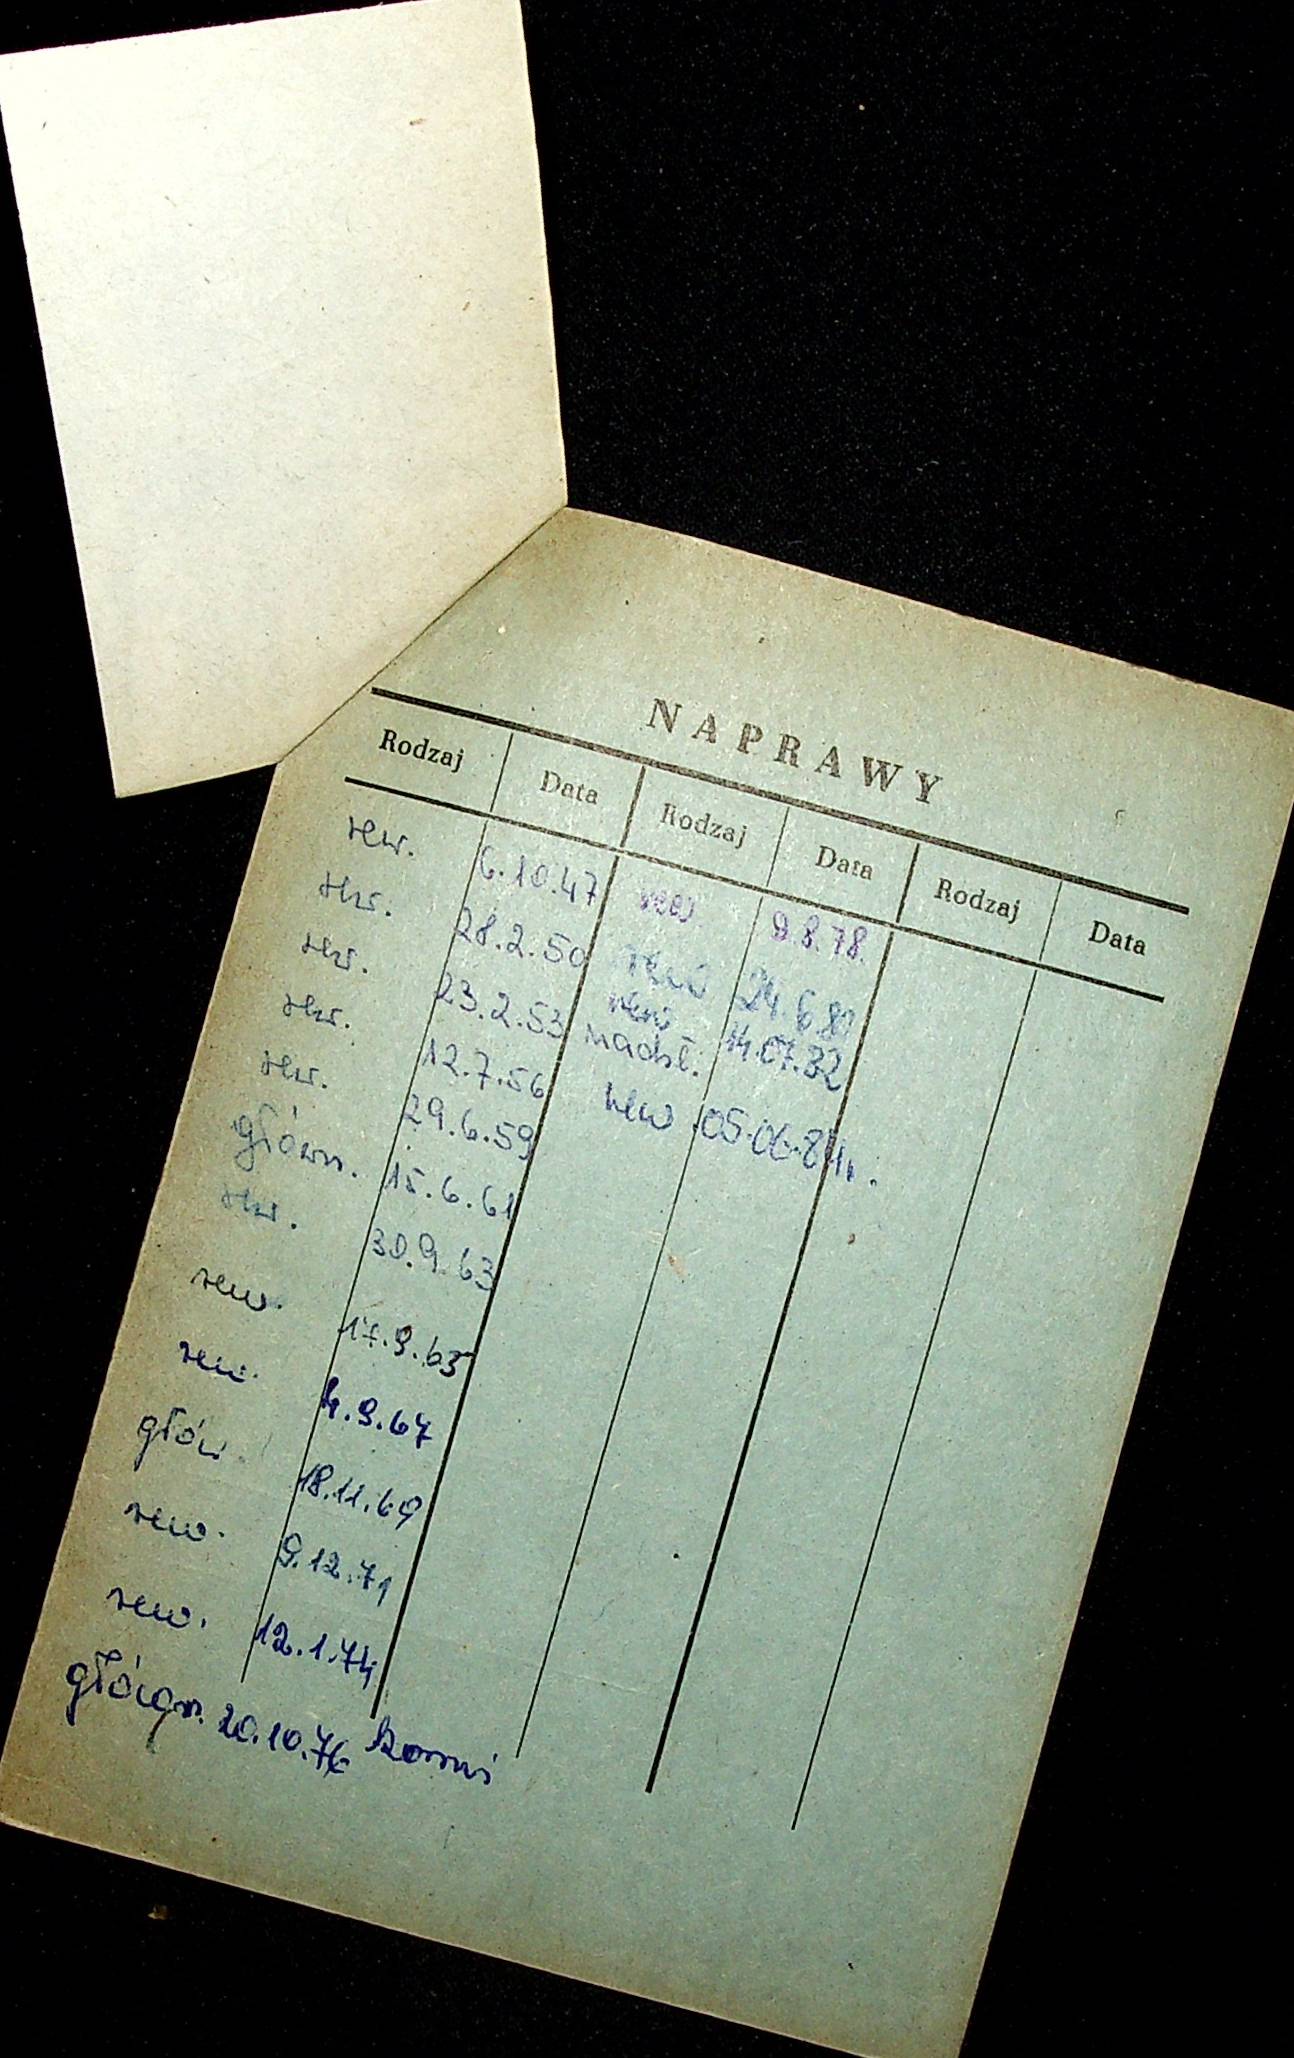 NAPRAWY
Rodzaj Data Rodzaj Data Rodzaj Data
rew. 6.10.47
rew. 28.2.50
rew. 23.2.53
rew. 12.7.56
rew. 29.6.59
główn. 15.6.61
rew. 30.9.63
rew. 17.9.65
rew. 4.9.67
głów. 18.11.69
rew. 9.12.71
rew. 12.1.74
20.10.76
rew. 9.8.78.
rew 24.6.80
rew
nadsł. 14.07.82
rew. 05.06.84r.